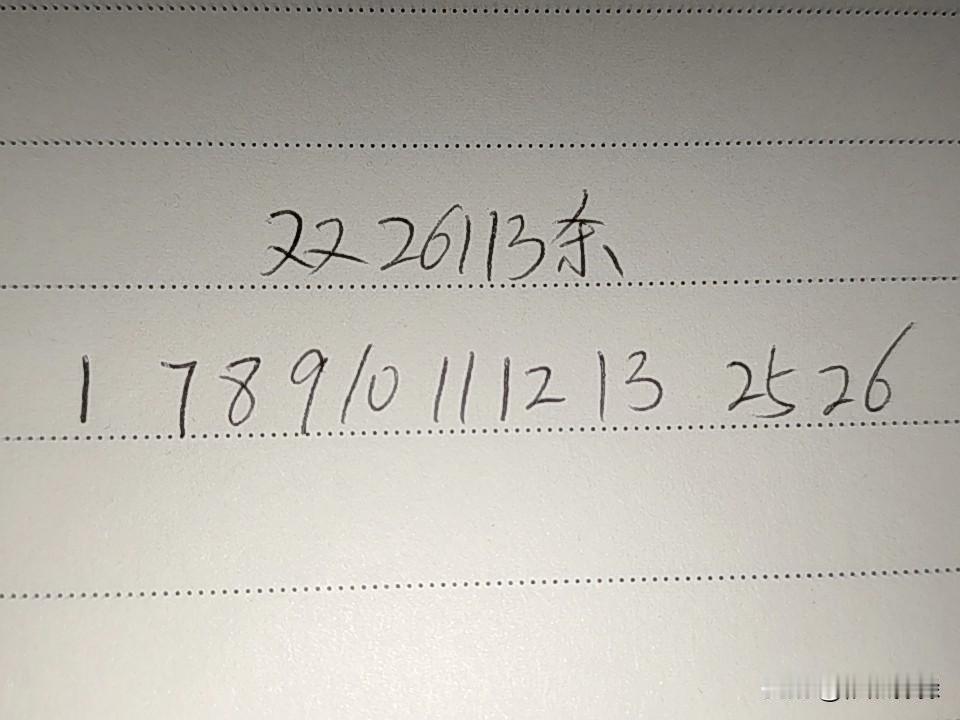 双26113杀
1 7 8 9 10 11 12 13 25 26